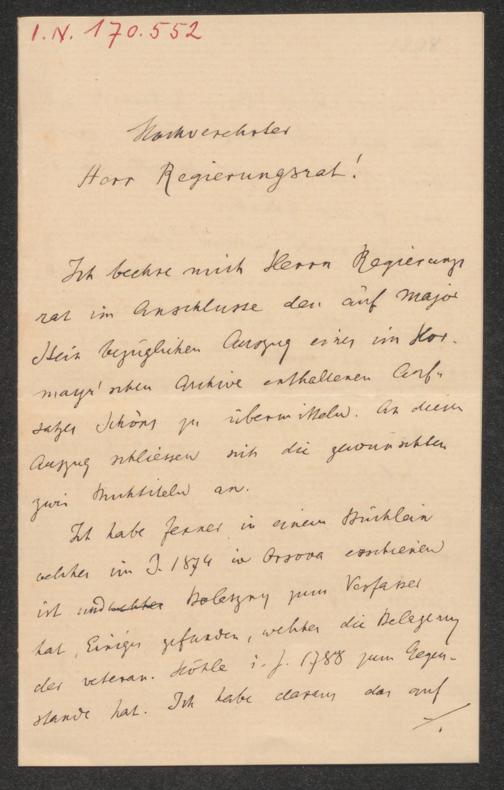 I.N. 170.552
Hochverehrter
Herr Regierungsrat!
Ich beehre mich Herrn Regierungs
rat im Anschlusse den auf Major
Stein bezüglichen Auszug eines im Hor-
mayr'schen Archive enthaltenen Auf-
satzes Schöns zu übermitteln. An diesen
Auszug schliessen sich die gewünschten
zwei Buchtiteln an.
Ich habe ferner in einem Büchlein
welches im J. 1874 in Orsova erschienen
ist und Boleszny zum Verfasser
hat, Einiges gefunden, welches die Belagerung
der veteran. Höhle i. J. 1788 zum Gegen-
stande hat. Ich habe daraus das auf
./.